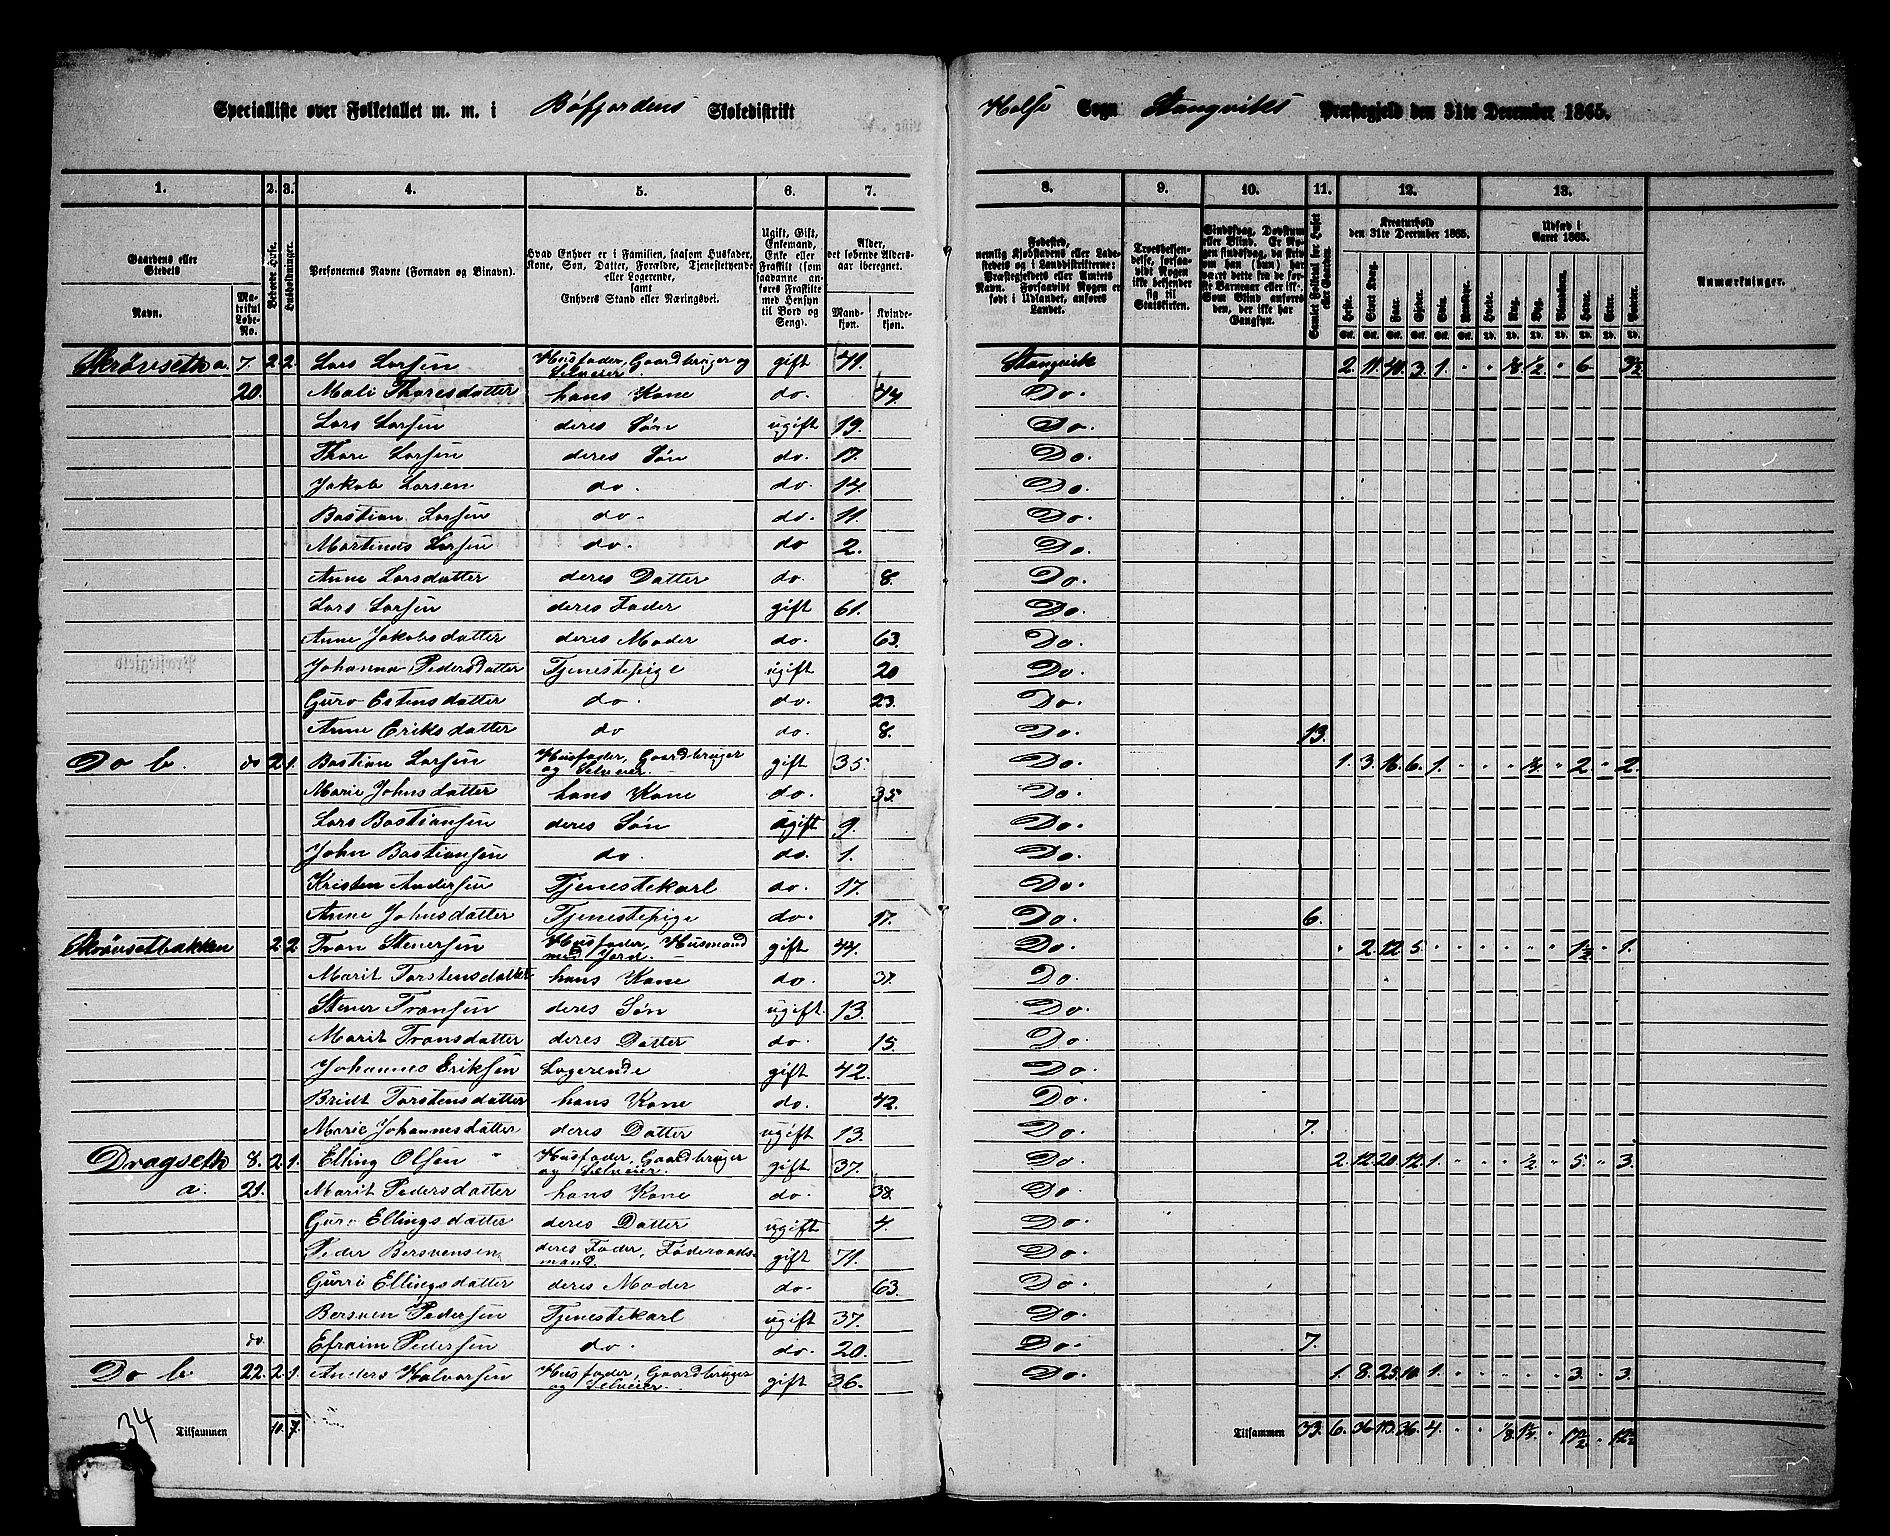 Specialliste over Folketallet m. m. i Bøfjordens Skoledistrikt Halse Sogn Stangviks Præstegjeld den 31te December 1865.
1. 2. 3. 4. 5. 6. 7. 8. 9. 10. 11. 12. 13.
Gaardens eller Stedets
Navn.
Matrikul Løbe-No.
Beboede Huse.
Husholdninger.
Personernes Navne (Fornavn og Binavn).
Hvad Enhver er i Familien, saasom Husfader, Kone, Søn, Datter, Forældre, Tjenestetyende eller Logerende, samt Enhvers Stand eller Næringsvei.
Ugift, Gift, Enkemand, Enke eller Fraskilt (som saadanne anføres Fraskilte med Hensyn til Bord og Seng).
Alder, det løbende Alders-aar iberegnet.
Mand-kjøn. Kvinde-kjøn.
Fødested, nemlig Kjøbstadens eller Ladestedets og i Landdistrikterne: Præstegjeldets eller Amtets Navn. Forsaavidt Nogen er født i Udlandet, anføres Landet.
Troesbekjendelse, forsaavidt Nogen ikke bekjender sig til Statskirken.
Sindssvag, Døvstum eller Blind. Er Nogen sindssvag, da skrives om han (hun) har været dette fra de første Barneaar eller ikke. Som Blind anføres den, der ikke har Gangsyn.
Samlet Folketal for Huset eller Gaarden.
Kreaturhold den 31te December 1865.
Heste. Stort Kvæg. Faar. Gjeder. Sviin. Rensdyr.
Udsæd i Aaret 1865.
Hvede. Rug. Byg. Blandkorn. Havre. Erter. Poteter.
Anmærkninger.
Skrövseth a. 7. 2. 2. Lars Larsen Husfader, Gaardbruger og Selveier gift 41. Stangvik 2. 11. 40. 3. 1. " " 1/8 1/2 " 6. " 3 1/2
20. Mali Thoresdatter hans Kone do. 44. Do.
Lars Larsen deres Søn ugift 19. Do.
Thore Larsen deres Søn do. 17. Do.
Jakob Larsen do. do. 14. Do.
Bastian Larsen do. do. 11. Do.
Martinus Larsen do. do 2. Do.
Anne Larsdatter deres Datter do. 8. Do.
Lars Larsen deres Fader gift 61. Do.
Anne Jakobsdatter deres Moder do. 63. Do.
Johanna Pedersdatter Tjenestepige ugift 20 Do.
Guro Estensdatter do. do. 23. Do.
Anne Eriksdatter do do. 8. Do. 13.
Do b. do 2. 1. Bastian Larsen Husfader, Gaardbruger og Selveier. gift 35. Do. 1. 3. 16. 6. 1. " " " " 2. " 2.
Marie Johnsdatter hans Kone do. 35. Do.
Lars Bastiansen deres Søn ugift 9. Do.
John Bastiansen do. do. 1. Do.
Kristen Andersen Tjenestekarl do. 17. Do.
Anne Johnsdatter Tjenestepige do. 17. Do. 6.
Skrövsetbakken 2 2 Tron Stenersen Husfader, Husmand med Jord. gift 44. Do. " 2. 12 5. " " " " " " 1 1/2 " 1.
Marit Torstensdatter hans Kone do. 37. Do.
Stener Tronsen deres Søn ugift. 13. Do.
Marit Tronsdatter deres Datter do. 15. Do.
Johannes Eriksen Logerende gift 42. Do.
Bridt Torstensdatter hans Kone do. 42. Do.
Marie Johannesdatter deres Datter ugift 13. Do. 7.
Dragseth 8. 2. 1. Elling Olsen Husfader, Gaardbruger og Selveier. gift 37. Do. 2. 12. 20. 12. 1. " " " 1/2 " 5. " 3.
a. 21. Marit Pedersdatter hans Kone do. 38. Do.
Guro Ellingsdatter deres Datter ugift 4. Do.
Peder Bersvensen deres Fader, Føderaads-mand. gift 71. Do.
Gurro Ellingsdatter deres Moder do. 63. Do.
Bersven Pedersen Tjenestekarl ugift 37. Do.
do. Efraim Pedersen do. do. 20. Do. 7.
Do b 22. 2. 1. Anders Halvorsen Husfader, Gaardbruger og Selveier. gift 36. Do. 1. 8. 25. 10. 1. " " " " " 3. " 3.
34 Tilsammen 10. 7. Tilsammen 33. 6. 36. 113. 36. 4. " " 1/8 " 17 1/2 " 12 1/2